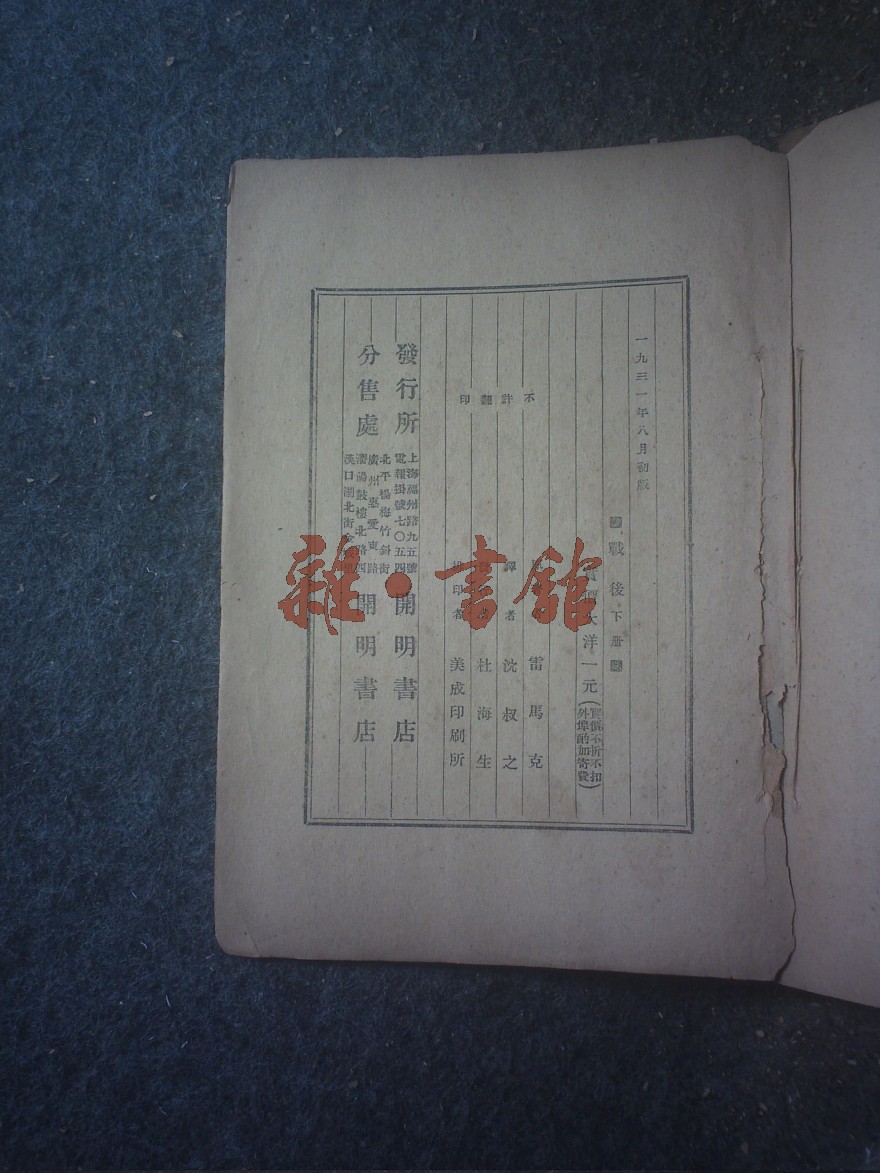 一九三一年八月初版
戰後下册
實價大洋一元
(實價不折不扣
外埠酌加寄費)
不許翻印
雷馬克
譯者 沈叔之
杜海生
印者 美成印刷所
發行所
上海福州路九五號
電報掛號七〇五四
開明書店
分售處
北平楊梅竹斜街
廣州惠愛東路
瀋陽鼓樓北路
漢口湖北街
開明書店
雜·書館